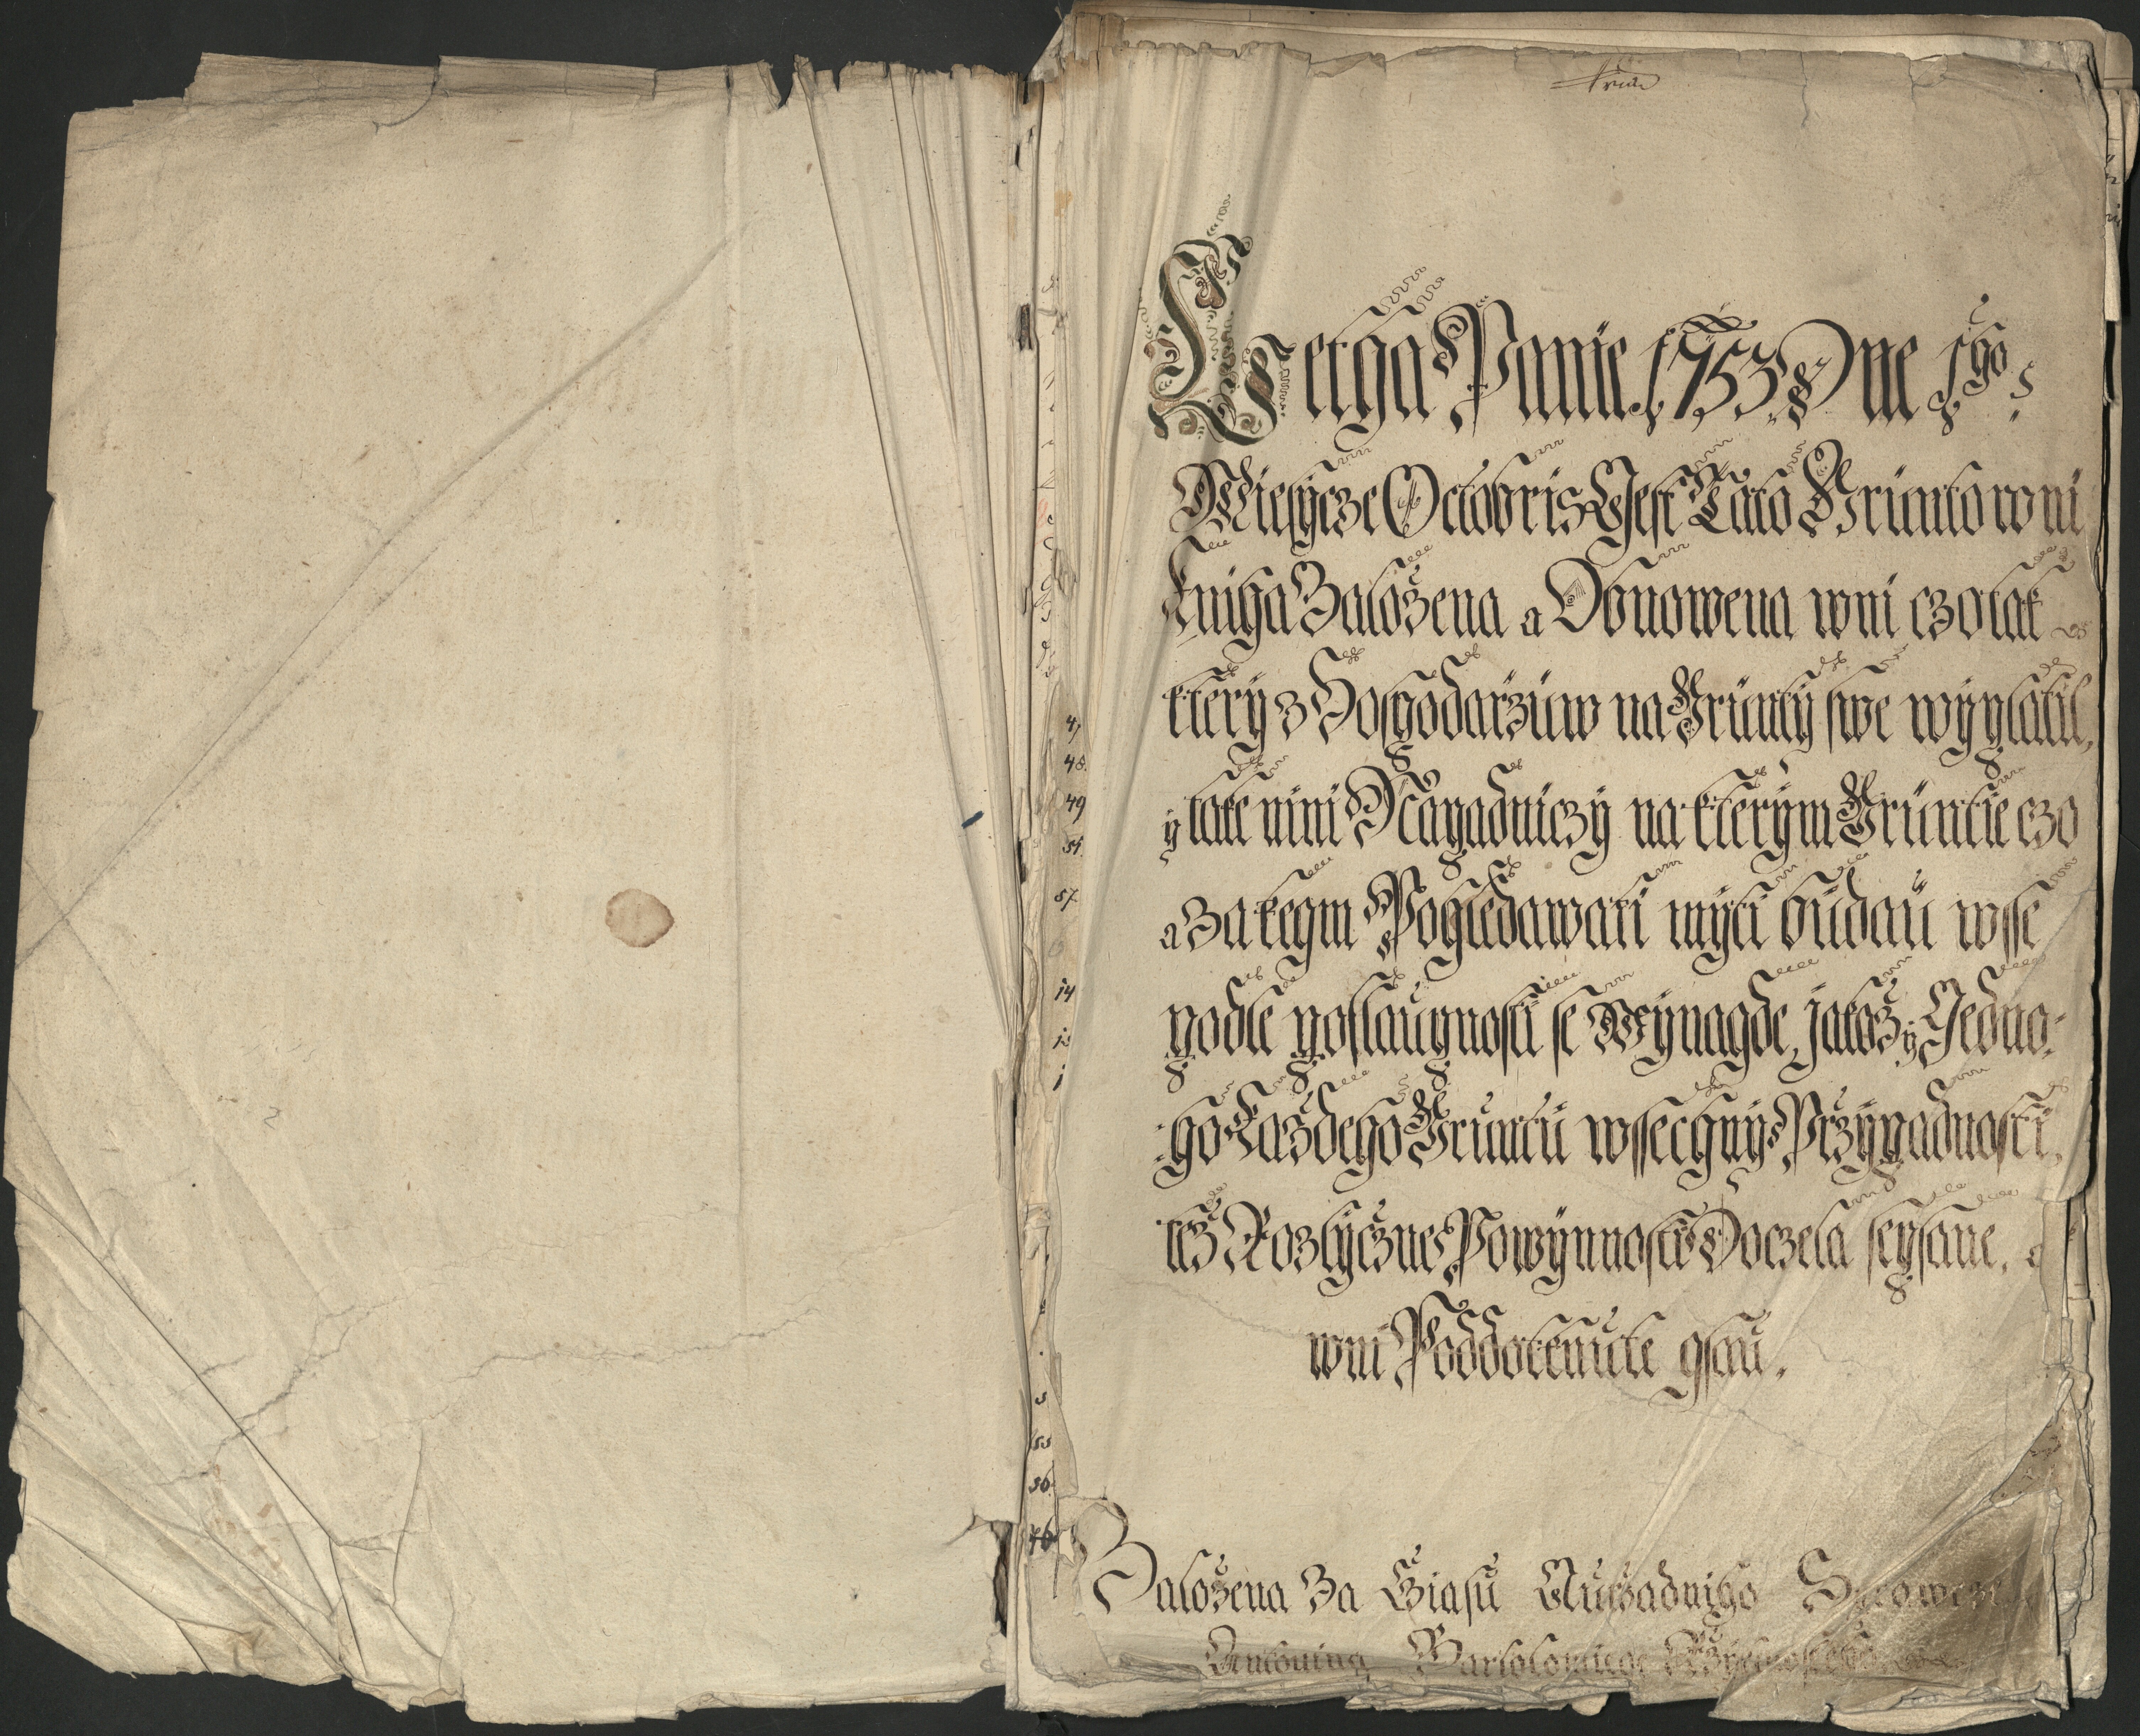 Letha Panie 1753 Dne 1ho
Miesycze Octobris Gest Tato Gruntowni
Kniha Založena a Obnowena wni czo tak
ktery z Hospodaržuw na Grunty swe wyplatil,
y take nini Napadniczy na kterym Gruntie czo
a za kegm Pohledawati myti budau wsse
podle posslaupnosti se Weynagde, jakož y Gedno-
ho každeho Gruntu wssechny Pržypadnosti,
též Rozlyczne Powynnosti Doczela sepsane, a
wni Poddotknute gsau.
Založena Za Cziasu Auržadniho
Antonina Bartolomiege
47
48.
49
57.
14
50
46